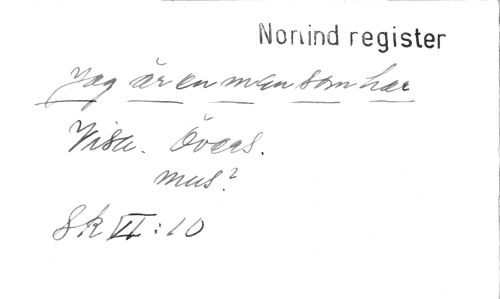 Norlind register
Jag är en man som har
Visa. Övers.
mus?
Sk VI:10